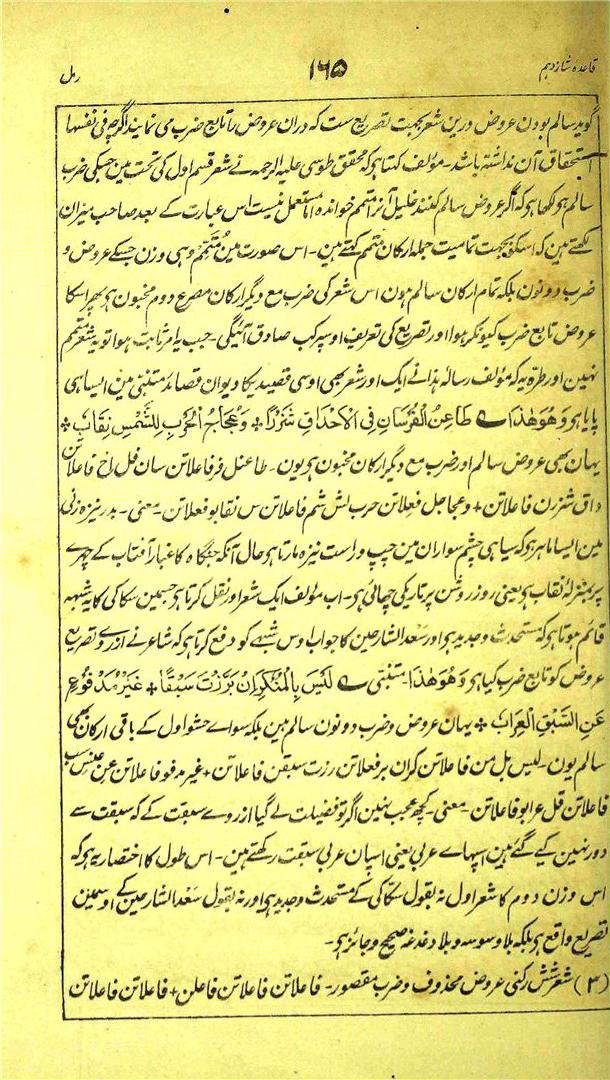 قاعدہ شازدہم ۱۶۵ رمل
گوید سالم بودن عروض درین شعر بجہت تصریع ست کہ دران عروض را تابع ضرب می نمایند اگرچہ فی نفسہا
استحقاق آن نداشتہ باشد۔ مؤلف کہتا ہی کہ محقق طوسی علیہ الرحمہ نے شعر قسم اول کی تحت مین جسکی ضرب
سالم ہو لکھا ہی کہ اگر عروض سالم کنند خلیل آنرا متمم خواندہ اما مستعمل نیست اس عبارت کے بعد صاحب میزان
لکھتے ہین کہ اسکو بجہت تمامیت جملہ ارکان متمم کہتے ہین۔ اس صورت مین مُتَمَّم وہی وزن جسکے عروض و
ضرب دونون بلکہ تمام ارکان سالم ہون اس شعر کی ضرب مع دیگر ارکان مصرع دوم مخبون ہو پھر اسکا
عروض تابع ضرب کیونکر ہوا اور تصریع کی تعریف اوسپر کب صادق آئیگی۔ جب یہ امر ثابت ہوا تو یہ شعر متمم
نہین اور طرہ یہ کہ مؤلف رسالہ ہذا نے ایک اور شعر بھی اوسی قصیدیکا دیوان قصائد متنبّی مین ایسا ہی
پایا ہی وَھُوَ ھٰذَا ؎ طَاعِنُ الْفُرْسَانِ فِی الْاَحْدَاقِ شَزْرًا ٭ وَعَجَاجُ الْحَرْبِ لِلشَّمْسِ نِقَابٗ ٭
یہان بھی عروض سالم اور ضرب مع دیگر ارکان مخبون ہی یون۔ طاعنل فر فاعلاتن سان فل اح فاعلاتن
داق شزرن فاعلاتن + وعجاجل فعلاتن حرب لش شم فاعلاتن س نقابو فعلاتن۔ یعنی۔ بدر نیزہ زنی
مین ایسا ماہر ہی کہ سیاہی چشم سواران مین چپ و راست نیزہ مارتا ہو حال آنکہ جنگاہ کا غبار آفتاب کے چہرے
پر بمنزلۂ نقاب ہی یعنی روز روشن پر تاریکی چھائی ہو۔ اب مؤلف ایک شعر اور نقل کرتا ہی جسمین سکاکی کا یہ شبہہ
قائم ہوتا ہی کہ مستحدث و جدید ہی اور سَعْد الشارحین کا جواب اوس شبہے کو دفع کرتا ہی کہ شاعر نے از روے تصریع
عروض کو تابع ضرب کیا ہی وَھُوَ ھٰذَا۔ متنبّی ؎ لَیْسَ بِالْمُنْکَرِ اِنْ بَرَّزْتَ سَبْقًا ٭ غَیْرُ مَدْفُوْعٍ
عَنِ السَّبْقِ الْعِرَابُ ٭ یہان عروض و ضرب دونون سالم ہین بلکہ سواے حشو اول کے باقی ارکان بھی
سالم یون۔ لیس بل من فاعلاتن کران بر فعلاتن رزت سبقن فاعلاتن + غیر مدفو فاعلاتن عن عنس سب
فاعلاتن قل عرابو فاعلاتن۔ معنی۔ کچھ عجب نہین اگر تو فضیلت لے گیا از روے سبقت کے کہ سبقت سے
دور نہین کیے گئے ہین اسپہاے عربی یعنی اسپان عربی سبقت رکھتے ہین۔ اس طول کا اختصار یہ ہی کہ
اس وزن دوم کا شعر اول نہ بقول سکاکی کے مستحدث و جدید ہی اور نہ بقول سَعْد الشارحین کے اوسمین
تصریع واقع ہی بلکہ بلا وسوسہ و بلا دغدغہ صحیح و جائز ہی۔
(۳) شعر شش رکنی عروض محذوف و ضرب مقصور۔ فاعلاتن فاعلاتن فاعلن + فاعلاتن فاعلاتن